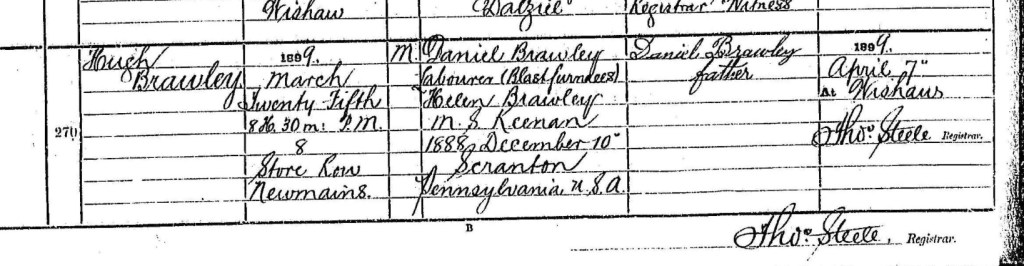 Wishaw
Dalziel
Registrar Witness
270
Hugh
Brawley
1889.
March
Twenty Fifth
8 H. 30 m. P.M.
8
Store Row
Newmains.
M.
Daniel Brawley
Labourer (Blastfurnces)
Helen Brawley
M. S. Keenan
1888, December 10"
Scranton
Pennsylvania U.S.A.
Daniel Brawley
father
1889.
April 7"
At Wishaw
Tho.s Steele Registrar.
B
Tho.s Steele, Registrar.